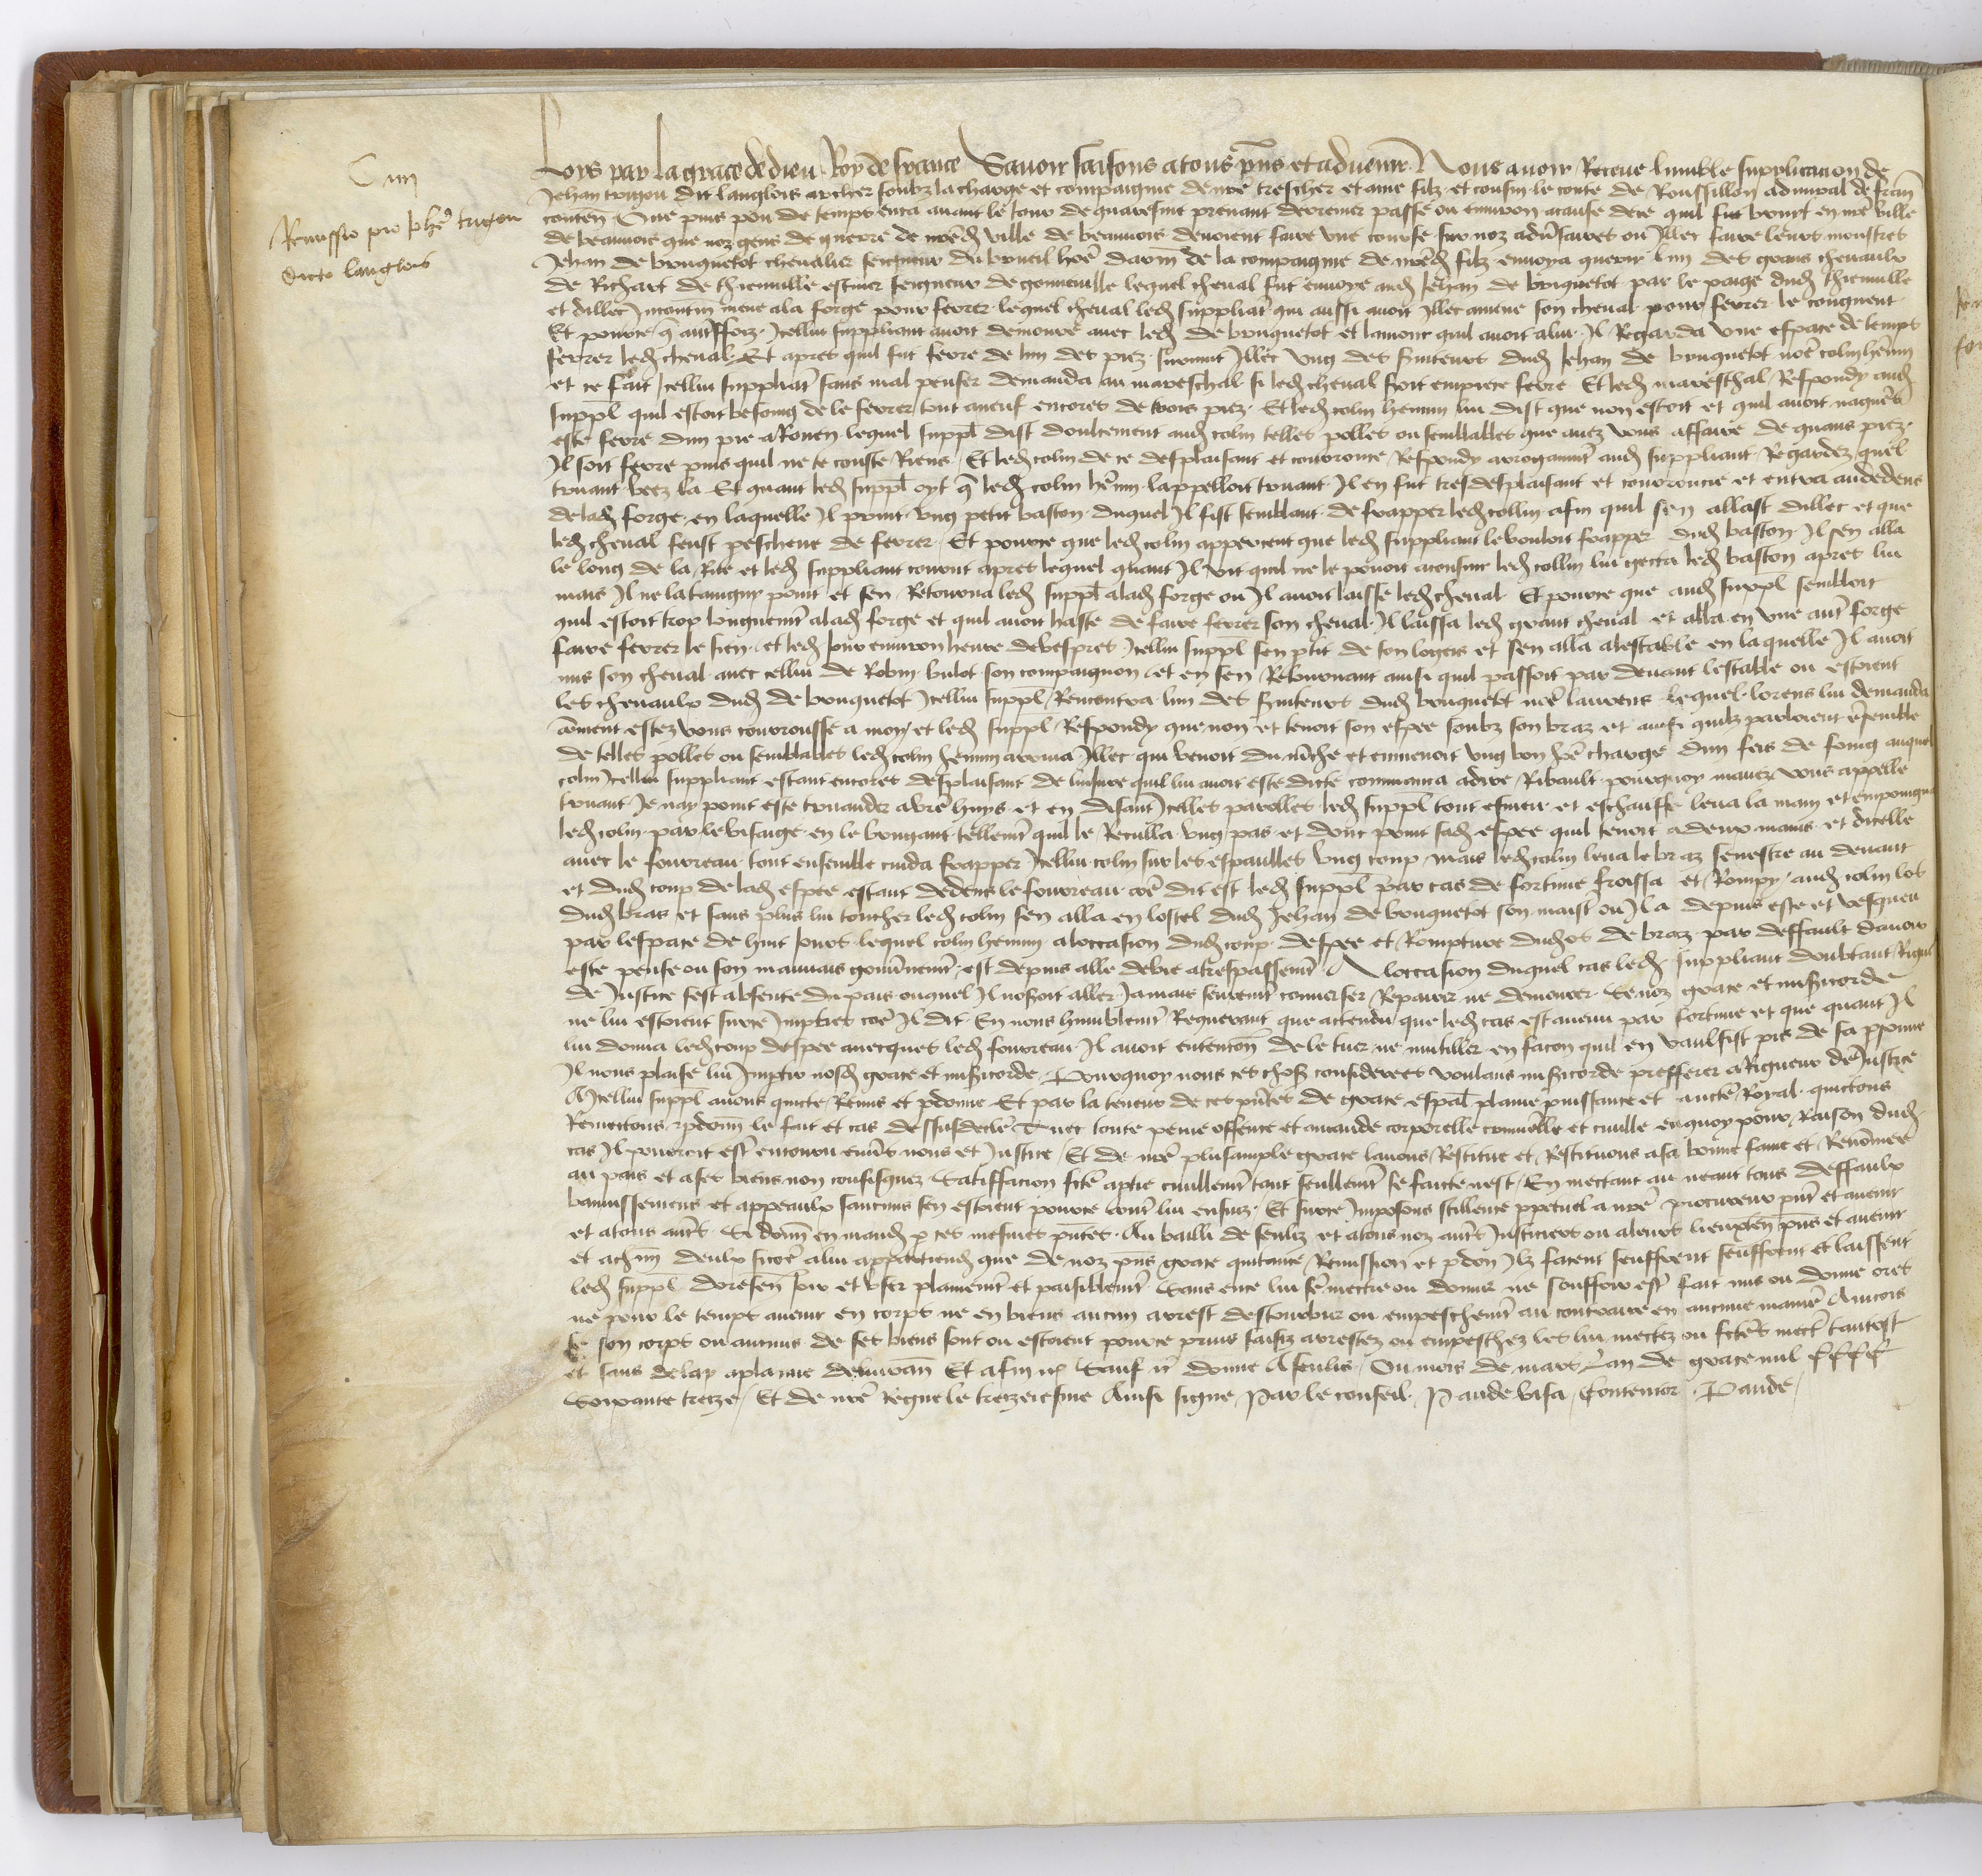 C iiii
Remissio pro Johē trigou
dicto langlois
Loys par la grace de dieu Roy de france Savoir faisons a tous pns et advenir Nous avoir Receue lumble supplicacion de
Jehan trigou dit langlois archer soubz la charge et compaignie de nre treschier et ame filz et cousin le conte de Roussillon admiral de fran
conten Que puis pou de temps enca avant le jour de quaresme prenant derrenier passe ou environ a cause de ce quil fut bruit en nre ville
de beauvais que noz gens de guerre de nred ville de beauvais devoient faire une course sur noz adversaires ou illec faire leurs monstres
Jehan de bruquetot chevalier seigneur du brueil home darm de la compaignie de nred filz envoya querir lun des grans chevaulx
de Richart de thieuville escuier seigneur de gonneville lequel cheval fut envoye aud Jehan de briquetot par le paige dud thieuville
et dillec incontin mene a la forge pour ferrer lequel cheval led suppliat qui aussi avoit illec amene son cheval pour ferrer le congneut
Et pource q autffoiz icellui suppliant avoit demoure avec led de bruquetot et lamour quil avoit a lui il Regarda une espace de temps
ferrer led cheval Et apres quil fut ferre de lun des piez survint illec ung des serviteurs dud Jehan de bruquetot nōe colin hemin
et ce fait icellui suppliat sans mal penser demanda au mareschal si led cheval soit empiece ferre Et led mareschal Respondy aud
suppl quil estoit besoing de le ferrer tout aneuf encores de trois piez Et led colin hemin lui dist que non estoit et quil avoit nagueres
este ferre dun pie a Rouen lequel suppl dist doulcement aud colin telles polles ou semblables que avez vous affaire de quans piez
il soit ferre puis quil ne te couste Riens Et led colin de ce desplaisant et courouce Respondy arroganmt aud suppliant Regardez quel
truant veez la Et quant led suppl oyt q led colin hemin lappelloit truant il en fut tresdesplaisant et courroucie et entra audedens
de lad forge en laquelle il print ung petit baston duquel il fist semblant de frapper led collin afin quil sen allast dillec et que
led cheval feust pescheve de ferrer Et pource que led colin apperceut que led suppliant le vouloit frapper dud baston il sen alla
le long de la Rue et led suppliant courut apres lequel quant il vit quil ne le povoit aconsuir led collin lui gecta led baston apres lui
mais il ne lataingny point et sen Retourna led suppl a lad forge ou il avoit laisse led cheval Et pource que aud suppl sembloit
quil estoit trop longuemt a lad forge et quil avoit haste de faire ferrer son cheval il laissa led grant cheval et alla en une aut forge
faire ferrer le sien et led jour environ heure de vespres icellui suppl sen ptit de son logeis et sen alla a lestable en laquelle il avoit
mis son cheval avec cellui de Robin bulot son compaignon et en sen Retournant ainsi quil passoit par devant lestable ou estoient
les chevaulx dud de bruquetot icellui suppl Rencontra lun des serviteurs dud bruquetot nōe laurens lequel lorens lui demanda
coment estez vous courousse a moy et led suppl Respondy que non et tenoit son espee soubz son braz et ainsi quilz parloient ensemble
de telles polles ou semblables led colin hemin arriva illec qui venoit du mche et emmenoit ung bon hōe charge dun fais de foing auquel
colin icellui suppliant estant encores desplaisant de linjure quil lui avoit este dicte commenca a dire Ribault pourquoy mavez vous appelle
truant Je nay point este truander a vre huys et en disant icelles parolles led suppl tout esmeu et eschauffe leva la main et empoingna
led colin par le visaige en le bougant tellemt quil le Reculla ung pas et donc print sad espee quil tenoit a deux mains et dicelle
avec le fourreau tout ensemble cuida frapper icellui colin sur les espaulles ung coup mais led colin leva le braz senestre au devant
et dud coup de lad espee estant dedens le fourreau coe dit est led suppl par cas de fortune froissa et Rompy aud colin los
dud bras et sans plus lui toucher led colin sen alla en lostel dud Jehan de bruquetot son maist ou il a depuis este et vesqueu
par lespace de huit jours lequel colin hemin a loccasion dud coup despee et Rompture dud os de braz par deffault davoir
este pense ou son mauvais gouvnemt est depuis alle de vie a trespassemt A loccasion duquel cas led suppliant doubtant Rigueur
de Justice sest absente du pais ouquel il noseroit aller jamais seuremt converser Repairer ne demourer se noz grace et misericorde
ne lui estoient sur ce imparties coe il dit En nous humblemt Requerant que attendu que led cas est avenu par fortune et que quant il
lui donna led coup despee avecques led fourreau il avoit entencon de le tuer ne mutiller en facon quil en vaulsist pis de sa psonne
il nous plaise lui impartir nosd grace et misericorde Pourquoy nous ces choses considerees voulans misericorde prefferer a Rigueur de Justice
A icellui suppl avons quicte Remis et pdonne Et par la teneur de ces pntes de grace espal plaine puissance et aucte Royal quictons
Remectons et pdonn le fait et cas dessusdecle avec toute peine offence et amende corporelle criminelle et civille en quoy pour Raison dud
cas il pourroit est encouru envs nous et Justice Et de nre plusample grace lavons Restitue et Restituons a sa bonne fame et Renommee
au pais et a ses biens non confisquez Satisfacion fcte a ptie civillemt tant seullemt se faicte nest En mectant au neant tous deffaulx
bannissemens et appeaulx saucuns sen estoient pource cont lui ensuiz Et sur ce imposons scillence ppetuel a nre procureur pnt et avenir
et a tous auts Si donn en mand p ces mesmes pntes Au bailli de senliz et a tous noz auts Justiciers ou a leurs lieuxten pns et avenir
et a chun deulx sicoe a lui appartiend que de noz pns grace quitance Remission et pdon ilz facent seuffrent seuffrent et laissent
led suppl doresen jouir et user plainemt et paisiblemt Sans en ce lui fe mectre ou donner ne souffrir est fait mis ou donne ores
ne pour le temps avenir en corps ne en biens aucun arrest destourbier ou empeschemt au contraire en aucune manie Aincois
se son corps ou aucuns de ses biens sont ou estoient pource prins saisiz arrestez ou empeschez les lui mectez ou fctes mect tantost
et sans delay a plaine delivran Et afin &c Sauf &c donne A senlis Ou mois de mars lan de grace mil cccc
Soixante treize Et de nre regne le treizeiesme Ainsi signe Par le conseil P aude visa Contentor P aude